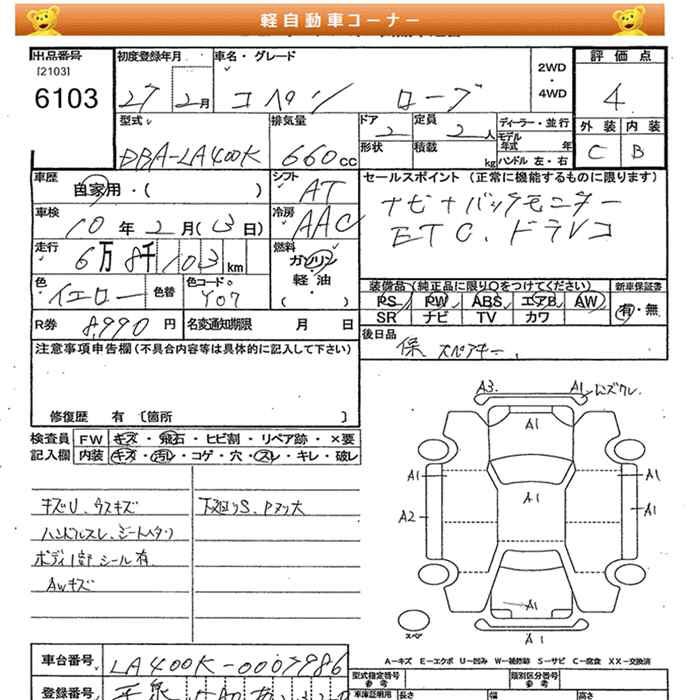 軽自動車コーナー
出品番号 初度登録年月 車名・グレード 2WD・4WD 評価点
[2103]
6103 27 2月 コペン ローブ 4
型式 排気量 ドア 2 定員 2人 ディーラー・並行 外装 内装
DBA-LA400K 660cc 形状 積載 kg モデル年式 年 ハンドル 左・右 C B
車歴 自家用・( ) シフト AT セールスポイント (正常に機能するものに限ります)
車検 10年2月(13日) 冷房 AAC ナビナバックモニター
ETC、ドラレコ
走行 6万8千103km 燃料 ガソリン・軽油・( )
色 イエロー 色替 色コードNo. Y07
装備品(純正品に限り○をつけてください) 新車保証書
PS PW ABS エアB AW 有・無
SR ナビ TV カワ
R券 8,990円 名変通知期限 月 日
後日品 保 スペアキー、
注意事項申告欄(不具合内容等は具体的に記入して下さい)
修復歴 有 〔箇所 〕
検査員 FW キズ・飛石・ヒビ割・リペア跡・×要
記入欄 内装 キズ・汚れ・コゲ・穴・スレ・キレ・破レ
キズU、ウスキズ 下廻りS、Pヌリ大
ハンドルスレ、シートヘタリ
ボディ1部シール有
Awキズ
A3 A1
A1
A1 A1
A1
A2 A1
A1
A1
スペア
A-キズ E-エクボ U-凹み W-補修跡 S-サビ C-腐食 XX-交換済
車台番号 LA400K-0007986 型式指定番号 参考 類別区分番号 参考
登録番号 車庫証明用 長さ 幅 高さ